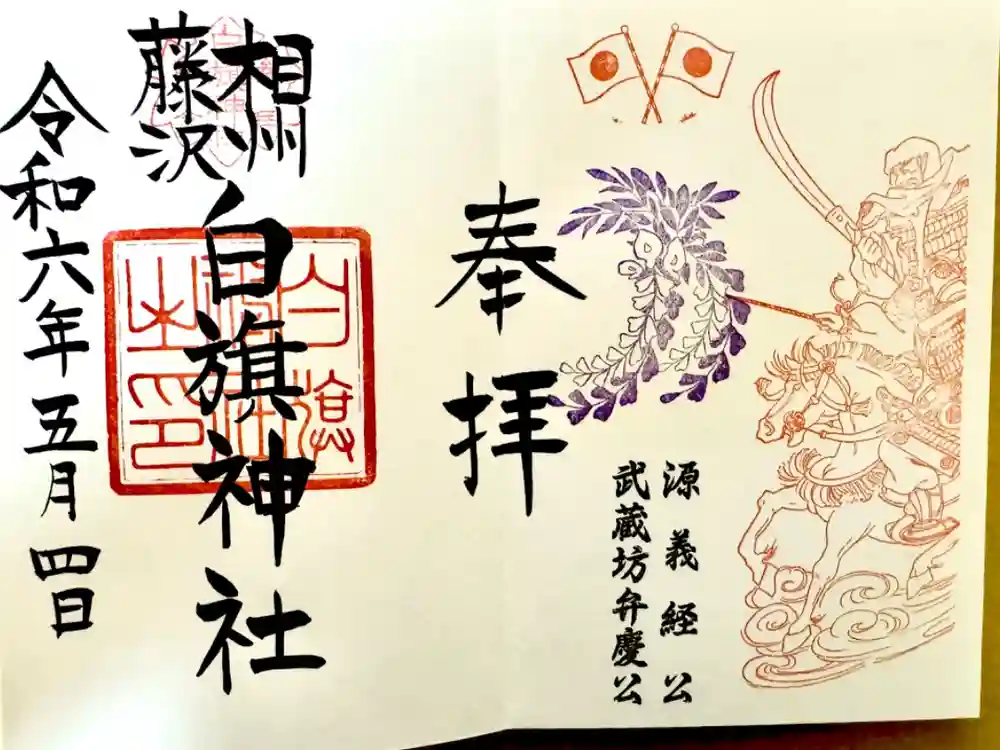 源義経公
武蔵坊弁慶公
奉拝
相州
藤沢
白旗神社
令和六年五月四日
白旗
神社
之印